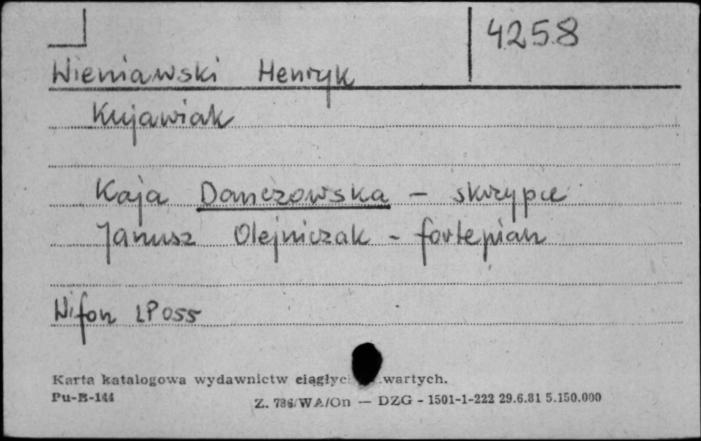 4258
Wieniawski Henryk
Kujawiak
Kaja Danczowska - skrzypce
Janusz Olejniczak - fortepian
Wifon LP 055
Karta katalogowa wydawnictw ciągłych wartych.
Pu-B-144
Z. 786/WA/On — DZG - 1501-1-222 29.6.81 5.150.000